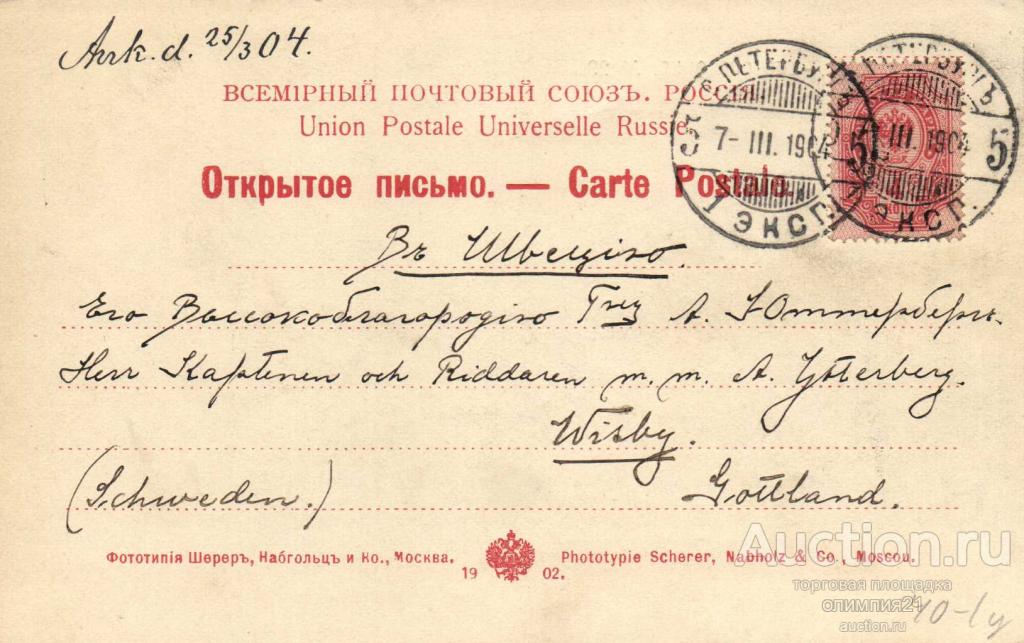 Ank. d. 25/3 04.
ВСЕМІРНЫЙ ПОЧТОВЫЙ СОЮЗЪ. РОССІЯ
Union Postale Universelle Russie
Открытое письмо. — Carte Postale.
С. ПЕТЕРБУРГЪ
7- III. 1904
5
1 ЭКСП.
С. ПЕТЕРБУРГЪ
III. 1904
5
ЭКСП.
Въ Швецію.
Его Высокоблагородію А. Юттербергъ.
Herr Kaptenen och Riddaren m. m. A. Ytterberg.
Wisby.
(Schweden.) Gottland.
Фототипія Шереръ, Набгольцъ и Ко., Москва. Phototypie Scherer, Nabholz & Co., Moscou.
19 02.
Auction.ru
торговая площадка
олимпия21
auction.ru